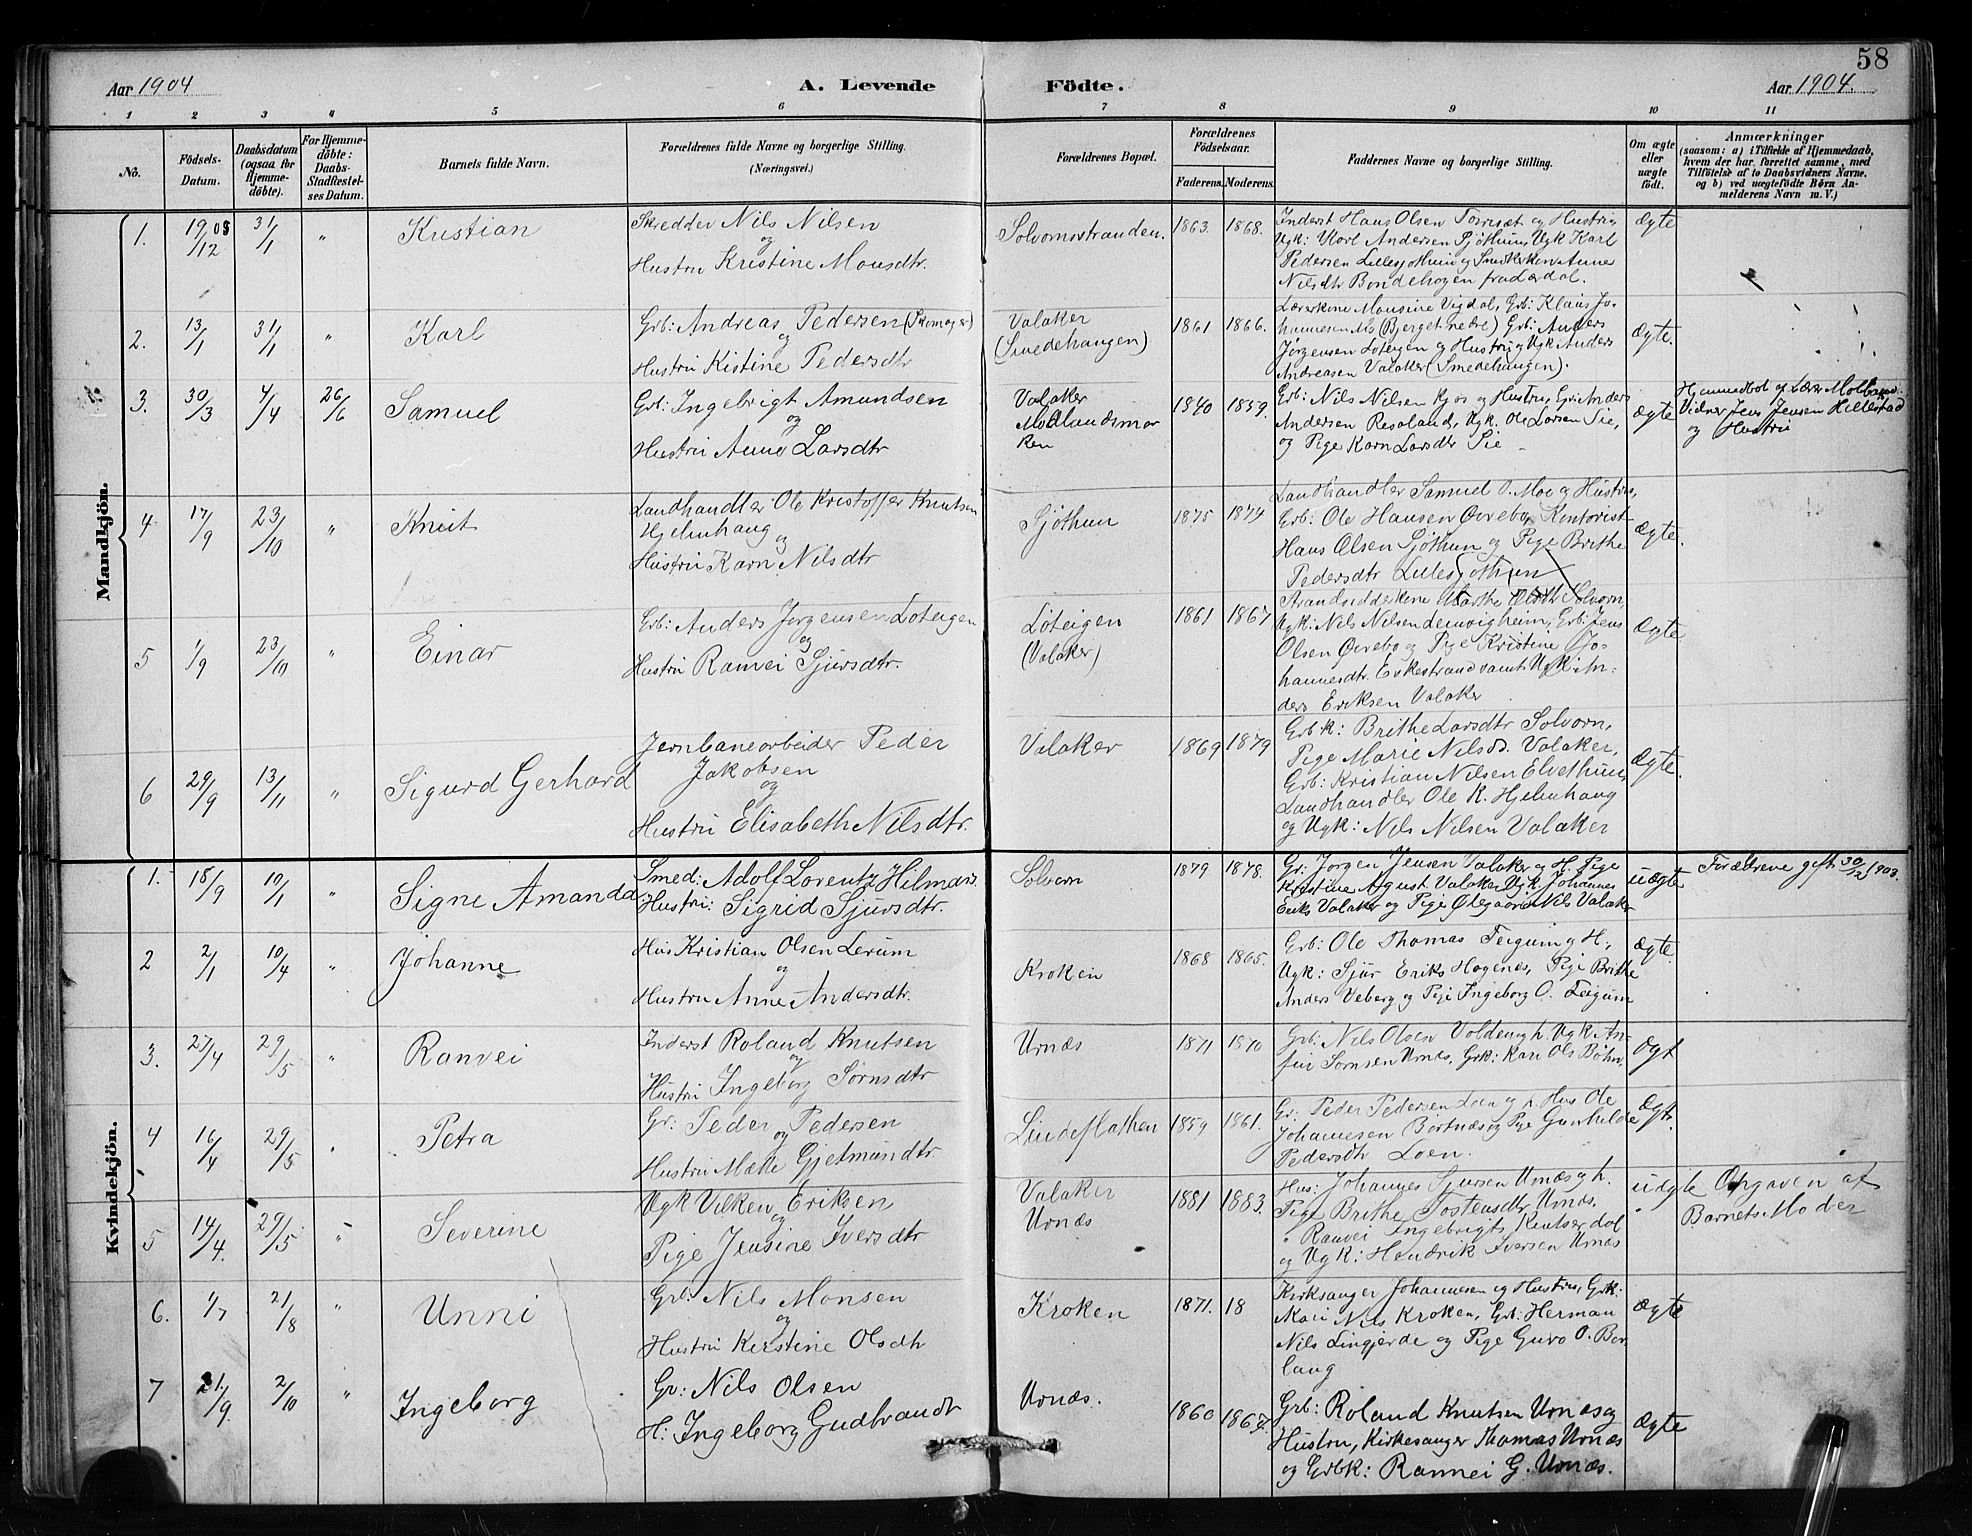 58
Aar 1904
A. Levende
Födte.
Aar 1904.
1 2 3 4 5 6 7 8 9 10 11
No.
Födsels-Datum.
Daabsdatum (ogsaa for Hjemmedöbte).
For Hjemmedöbte: Daabs-Stadfæstelses Datum.
Barnets fulde Navn.
Forældrenes fulde Navne og borgerlige Stilling. (Næringsvei.)
Forældrenes Bopæl.
Forældrenes Födselsaar.
Faderens. Moderens.
Faddernes Navne og borgerlige Stilling.
Om ægte eller uægte födt.
Anmærkninger (saasom: a) i Tilfælde af Hjemmedaab, hvem der har forrettet samme, med Tilföielse af to Daabsvidners Navne, og b) ved uægtefödte Börn Anmelderens Navn m. V.)
Mandkjön.
1. 19/12 03 31/1 " Kristian
Skredder Nils Nilsen
og
Hustru Kristine Monsdtr.
Solvornsstranden. 1863. 1868.
Inderst Hans Olsen Torsæt og Hustru,
Ugk: Karl Andersen Sjøthun, Ugk Karl
Pedersen Lillesjøthun og Snedkerkone Anne
Nilsdtr Bondehogen fra Ardal.
Ægte
2. 13/1 31/1 " Karl
Grb: Andreas Pedersen (Skomager)
og
Hustru Kistine Pedersdtr
Valaker
(Smedehaugen)
1861 1866.
Lærerkone Monsine Vigdal, Grb: Klaus Jo-
hannesen Mo (Bjerget nedre) Grb: Anders
Jørgensen Loteigen og Hustru og Ugk Anders
Andreasen Valaker (Smedehaugen).
Ægte.
3. 30/3 4/4 26/6 Samuel
Grb: Ingebrigt Amundsen
og
Hustru Anna Larsdtr
Valaker
Modlandsmar
ken
1840 1859.
Grb: Nils Nilsen Kjos og Hustru, Grb: Anders
Andersen Resaland, Ugk. Ole Larsen Sie,
og Pige Karn Larsdtr Sie
Ægte
Hjemmedøbt af Lærer
Vidner Jens Jensen Hillestad
og Hustru
4 17/9 23/10 " Knut
Landhandler Ole Kristoffer Knutsen
Hjelmhaug
og
Hustru Karn Nilsdtr
Sjøthun
1875 1874
Landhandler Samuel O. Moe og Hustru,
Grb: Ole Hansen Øvrebø, Kontorist
Hans Olsen Sjøthun og Pige Brithe
Pedersdtr Lillesjøthun
Ægte.
5 1/9 23/10 " Einar
Grb: Anders Jørgensen Loteigen
og
Hustru Ranvei Sjursdtr.
Løteigen
(Valaker)
1861 1867
Strandsidderkone Marthe Olsdtr Solvorn,
Ugk: Nils Nilsen Lemvigheim, Grb: Jens
Olsen Øvrebø og Pige Kristine Jo-
hannesdtr. Eikestrand samt Ugk: An-
ders Eriksen Valaker
Ægte
6 29/9 13/11 " Sigurd Gerhard
Jernbanearbeider Peder
Jakobsen
og
Hustru Elisabeth Nilsdtr.
Valaker
1869 1879
Grbk: Brithe Larsdtr Solvorn,
Pige Marie Nilsd. Valaker,
Grb: Kristian Nilsen Elvethun,
Landhandler Ole K. Hjelmhaug
og Ugk: Nils Nilsen Valaker
Ægte.
Kvindekjön.
1. 18/9 10/1 Signe Amanda
Smed: Adolf Lorentz Hilmars.
Hustru: Sigrid Sjursdtr.
Solvorn
1879 1878.
Gr: Jørgen Jensen Valaker og H, Pige
Kristine August Valaker, Ugk. Johannes
Eriks Valaker og Pige Nils Valaker
uægte
Forældrene gift 30/12 1903.
2 2/1 10/4 " Johanne
Hus Kristian Olsen Lerum
og
Hustru Anne Andersdtr.
Kroken
1868 1865.
Grb: Ole Thomas Feigum og H.,
Ugk: Sjur Eriks Hagenes, Pige Brithe
Anders Veberg og Pige Ingeborg O. Feigum
Ægte.
3. 27/4 29/5 " Ranvei
Inderst Roland Knutsen
og
Hustru Ingeborg Sørnsdtr
Urnæs
1871 1870
Grb: Nils Olsen Volden og h. Ugk An-
fin Sørnsen Urnæs, Grk: Kari Ols Bøhn,
Ægt
4 16/4 29/5 " Petra
Gr: Peder Pedersen
og
Hustru Matli Gjetmundtr
Lindeflathen
1859 1861.
Gr: Peder Pedersen Loen og h. Hus Ole
Johannesen Bortnæs og Pige Gunhilde
Pedersdtr Loen.
Ægt.
5 14/4. 29/5 " Severine
Ugk Vilken Eriksen
og
Pige Jensine Iversdtr
Valaker
Urnæs
1881 1883.
Hus: Johannes Sjursen Urnæs og h.
Pige Brithe Tostensdtr Urnæs.
" Ranvei Ingebrigts Knutserdal
og Ugk: Hendrik Iversen Urnæs
uægte
Opgaven af
Barnets Moder
6. 1/7 21/8 " Unni
Grb: Nils Monsen
og
Hustru Kerstine Olsdtr
Kroken
1871. 18
Kirksanger Johannesen og Hustru, Grk:
Mari Nils Kroken, Grb: Herman
Nils Lingjerde og Pige Guro O. Bor-
laug
Ægte
7 21/9. 2/10 " Ingeborg
Gr: Nils Olsen
H: Ingeborg Gudbrandt
Urnæs.
1860 1864.
Grb: Roland Knutsen Urnæs og
Hustru, Kirkesanger Thomas Urnæs
og Grbk: Rannei G. Urnæs.
Ægte